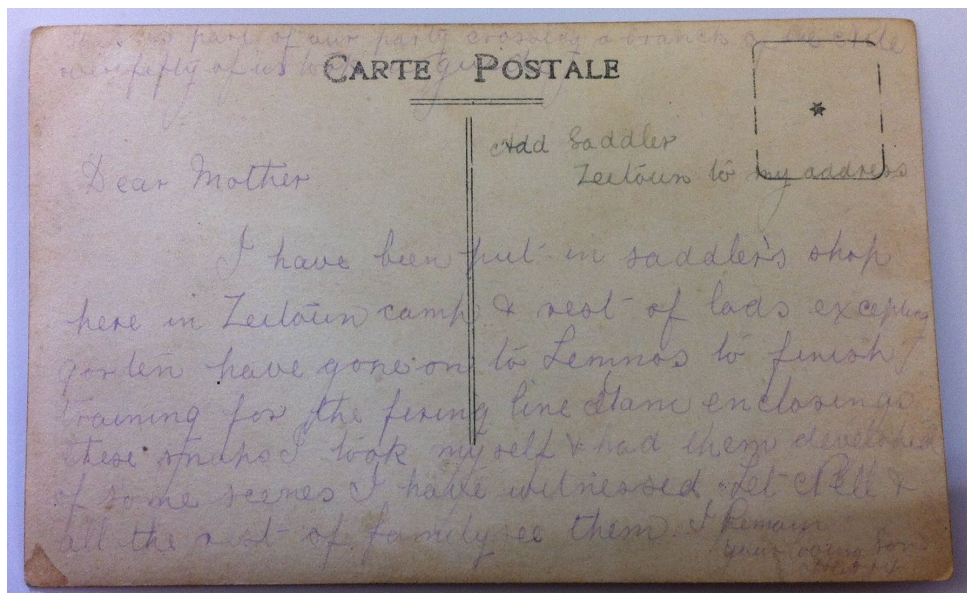 part of our party crossing a branch of
of us
CARTE POSTALE
Add Saddler
Zeitoun to my address
Dear Mother
I have been put in saddler's shop
here in Zeitoun camp & rest of lads excepting
ten have gone on to Lemnos to finish
training for the firing line I am enclosing
these snaps I took myself & had them developed
of some scenes I have witnessed. Let Nell &
all the rest of family see them. I Remain
your loving Son